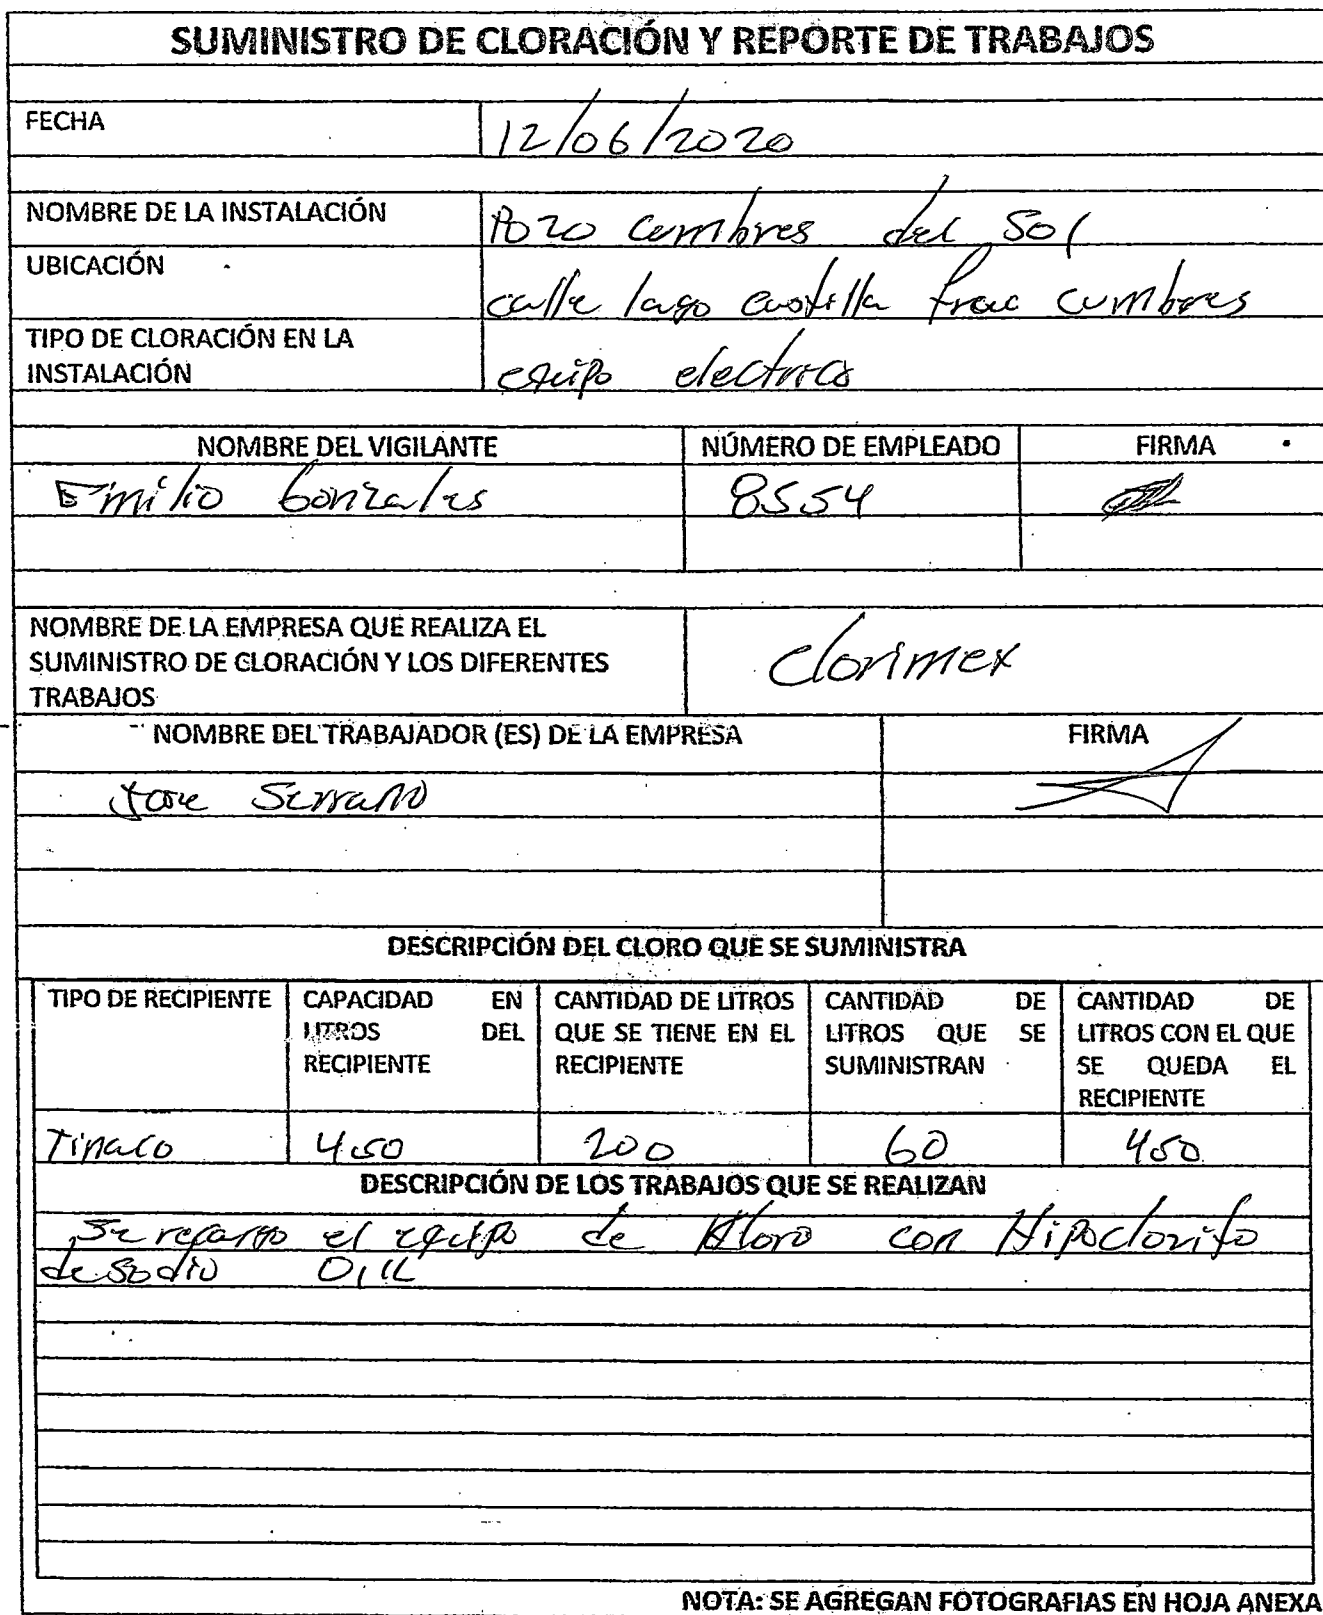 SUMINISTRO DE CLORACIÓN Y REPORTE DE TRABAJOS
FECHA 12/06/2020
NOMBRE DE LA INSTALACIÓN Pozo cumbres del Sol
UBICACIÓN calle lago frac cumbres
TIPO DE CLORACIÓN EN LA
INSTALACIÓN equipo electrico
NOMBRE DEL VIGILANTE NÚMERO DE EMPLEADO FIRMA
Emilio Gonzales 8554
NOMBRE DE LA EMPRESA QUE REALIZA EL
SUMINISTRO DE CLORACIÓN Y LOS DIFERENTES
TRABAJOS
Clorimex
NOMBRE DEL TRABAJADOR (ES) DE LA EMPRESA FIRMA
Jose Serrano
DESCRIPCIÓN DEL CLORO QUE SE SUMINISTRA
TIPO DE RECIPIENTE
CAPACIDAD EN
LITROS DEL
RECIPIENTE
CANTIDAD DE LITROS
QUE SE TIENE EN EL
RECIPIENTE
CANTIDAD DE
LITROS QUE SE
SUMINISTRAN
CANTIDAD DE
LITROS CON EL QUE
SE QUEDA EL
RECIPIENTE
Tinaco 450 200 60 450
DESCRIPCIÓN DE LOS TRABAJOS QUE SE REALIZAN
Se el equipo de kloro con Hipoclorito
de Sodio
NOTA: SE AGREGAN FOTOGRAFIAS EN HOJA ANEXA